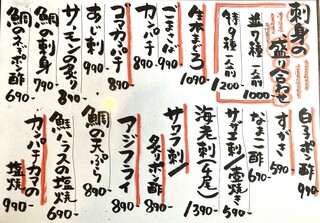 刺身の
盛り合わせ
並7種 一人前 1000-
特9種 一人前 1200-
生本まぐろ 1090-
ごまさば 990-
カンパチ 890-
ゴマカンパチ 890-
あじ刺 990-
サーモンの炙り 890-
鯛の刺身 790-
鯛のネギポン酢 690-
白子ポン酢 990-
すがき 590-
なまこ酢 690-
サザエ 刺/壺焼き 890-
海老刺(4尾) 1390-
サワラ刺/炙ポン酢 890-
アジフライ 890-
鯛の天ぷら 890-
鮭ハラスの塩焼 690-
カンパチカマの塩焼 490-